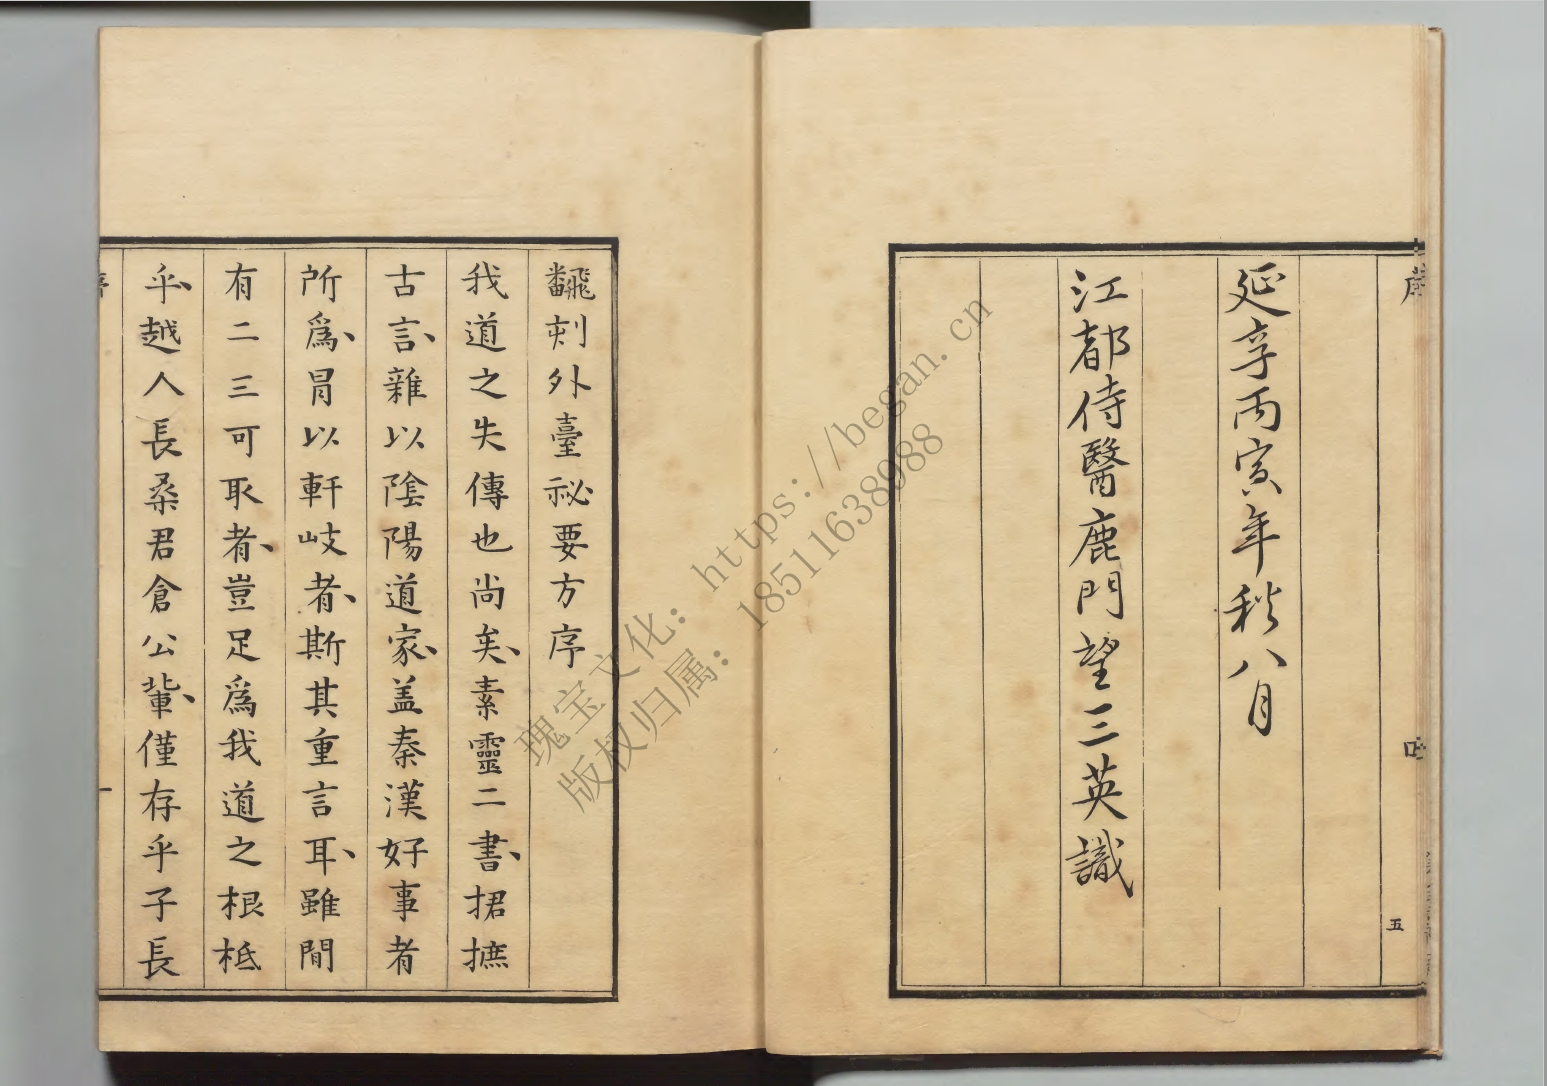 延享丙寅年秋八月
江都侍醫鹿門望三英識
五
飜刻外臺祕要方序
我道之失傳也尚矣、素靈二書、捃摭
古言、雜以陰陽道家、盖秦漢好事者
所爲、冐以軒岐者、斯其重言耳、雖間
有二三可取者、豈足爲我道之根柢
乎、越人長桑君倉公輩、僅存乎子長
一
瑰宝文化：https://began.cn
版权归属：18511638988